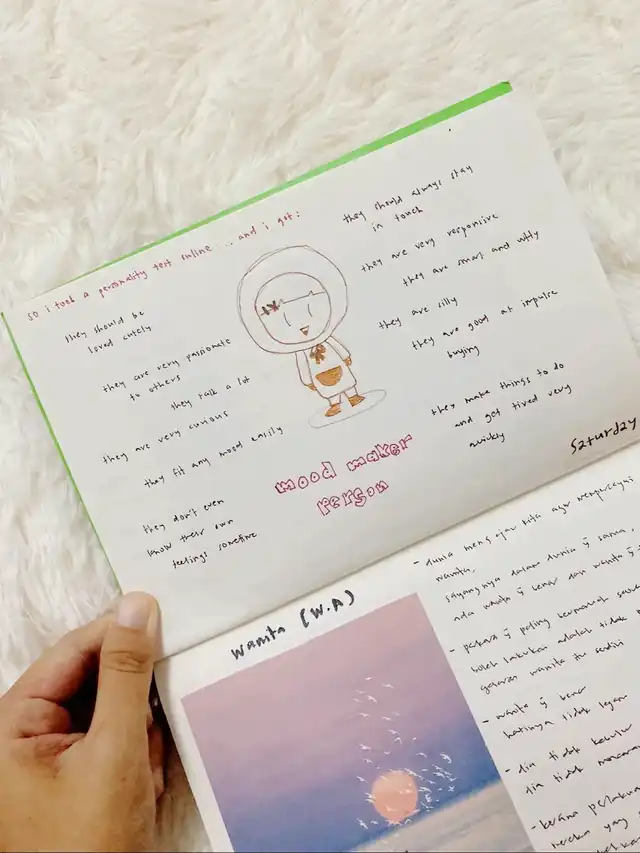 so i took a personality test online ... and i got:
they should be
loved cutely
they are very passionate
to others
they talk a lot
they are very curious
they fit any mood easily
they don't even
know their own
feelings sometime
mood maker
person
they should always stay
in touch
they are very responsive
they are smart and witty
they are silly
they are good at impulse
buying
they make things to do
and get tired very
quickly
Saturday
wanita (W.A)
- dunia mengajar kita agar mempercayai
wanita,
sayangnya dalam dunia ÿ sama,
ada wanita ÿ benar dan wanita ÿ
- perkara ÿ paling bermaruah
boleh lakukan adalah tidak
wanita itu sendiri
- wanita ÿ benar
hatinya tidak
- dia tidak
dia tidak